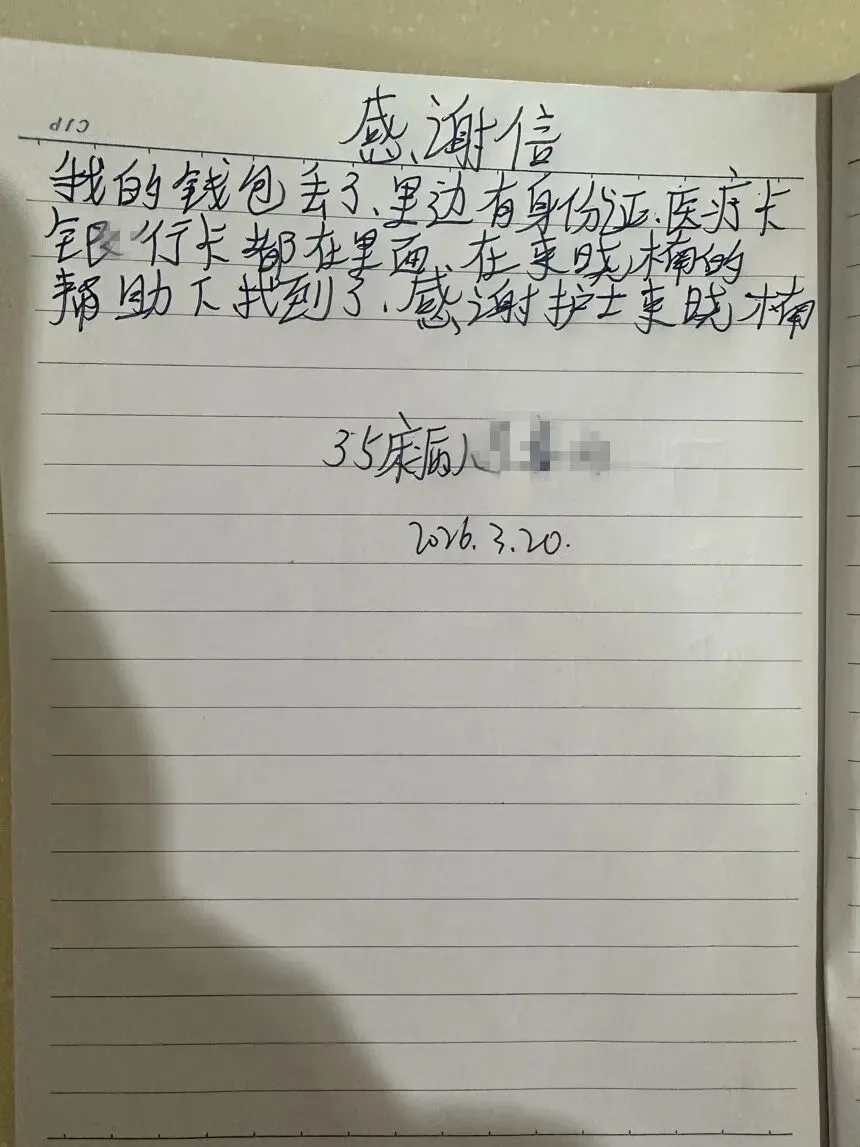 感谢信
我的钱包丢了、里边有身份证、医疗卡
银行卡都在里面 在来晓楠的
帮助下找到了、感谢护士来晓楠
35床病人
2026.3.20.